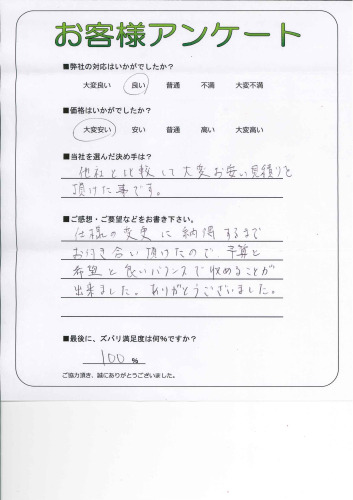 お客様アンケート
■弊社の対応はいかがでしたか？
大変良い 良い 普通 不満 大変不満
■価格はいかがでしたか？
大変安い 安い 普通 高い 大変高い
■当社を選んだ決め手は？
他社と比較して大変お安い見積りを
頂けた事です。
■ご感想・ご要望などをお書き下さい。
仕様の変更に納得するまで
お付き合い頂けたので、予算と
希望と良いバランスで収めることが
出来ました。ありがとうございました。
■最後に、ズバリ満足度は何%ですか？
100 %
ご協力頂き、誠にありがとうございました。